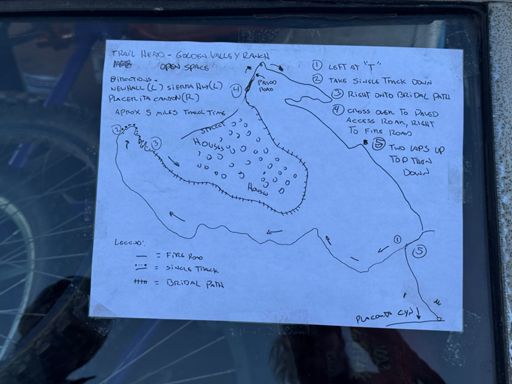 TRAIL HERO - GOLDEN VALLEY RANCH
OPEN SPACE
DIRECTIONS -
NEWHALL (L) SIERRA HWY (L)
PLACERITA CANYON (R)
APROX 5 MILES TRACK TIME
① LEFT AT "T"
② TAKE SINGLE TRACK DOWN
③ RIGHT ONTO BRIDAL PATH
④ CROSS OVER TO PAVED
ACCESS ROAD, RIGHT
TO FIRE ROAD
⑤ TWO LAPS UP
TOP THEN
DOWN
PAVED
ROAD
4
STREET
HOUSES
HOUSES
2
3
1
5
LEGEND:
— = FIRE ROAD
= SINGLE TRACK
= BRIDAL PATH
PLACERITA CYN